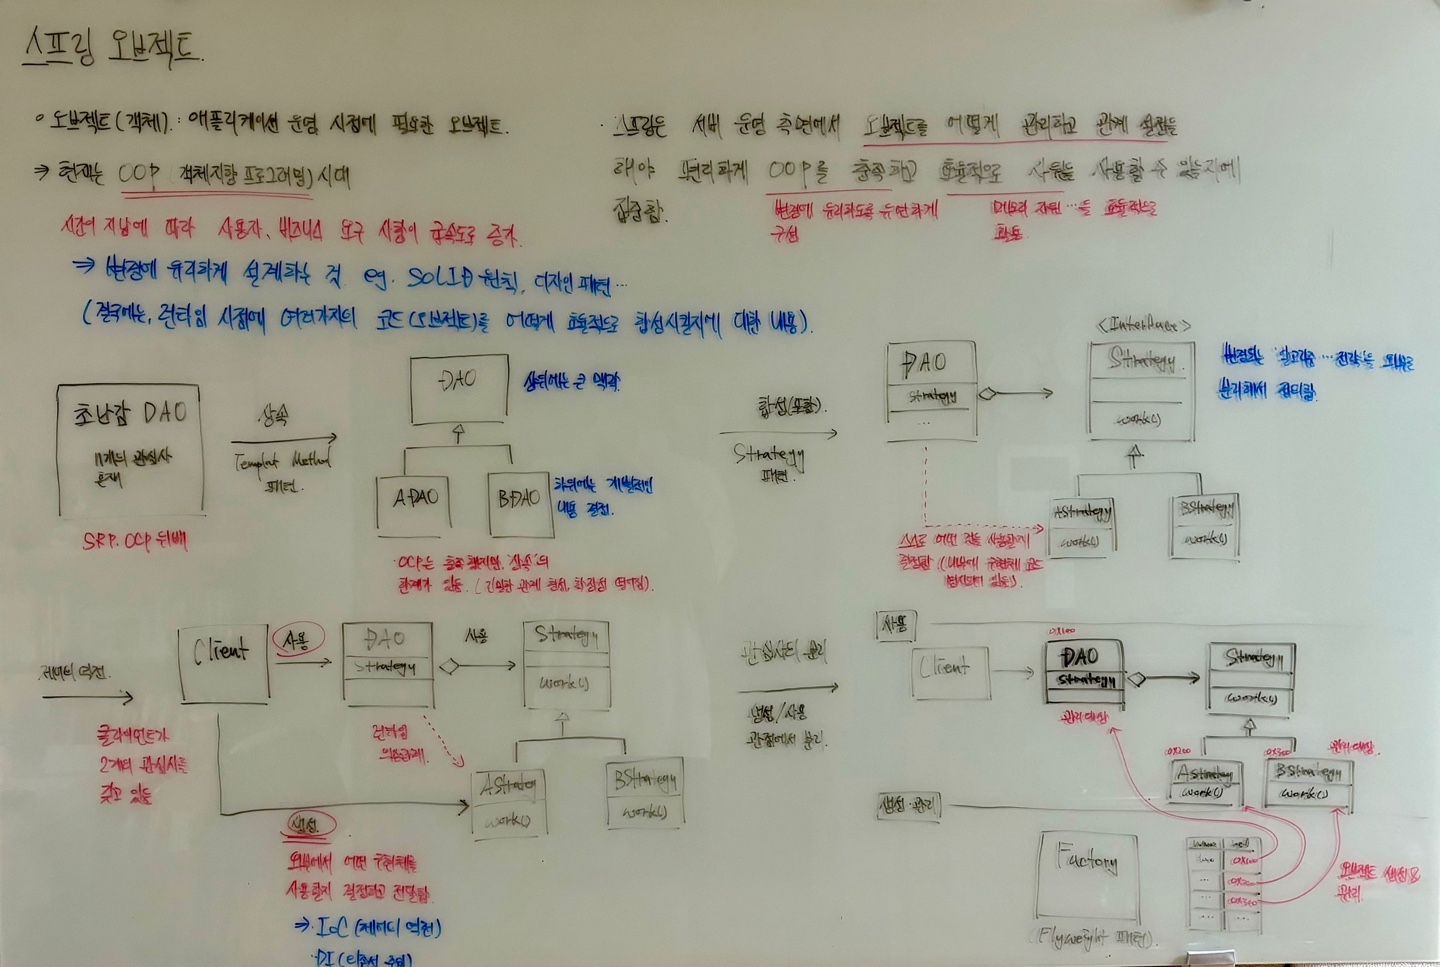 스프링 오브젝트.
◦ 오브젝트(객체) : 애플리케이션 운영 시점에 필요한 오브젝트.
⇒ 현재는 OOP (객체지향 프로그래밍) 시대
시간이 지남에 따라 사용자, 비즈니스 요구 사항이 급속도로 증가.
⇒ 변경에 유리하게 설계하는 것 eg. SOLID 원칙, 디자인 패턴 ...
(결국에는, 런타임 시점에 여러가지의 코드(오브젝트)를 어떻게 효율적으로 합성시킬지에 대한 내용).
· 스프링은 서버 운영 측면에서 오브젝트를 어떻게 관리하고 관계 설정을
해야 편리하게 OOP를 충족하고 효율적으로 자원을 사용할 수 있는지에
집중함.
변경에 유리하도록 유연하게
구성
메모리 자원 ... 등 효율적으로
활용
초난감 DAO
n개의 관심사
혼재
SRP. OCP 위배
상속
Template Method
패턴.
DAO
상위에는 큰 맥락.
A DAO
B DAO
하위에는 개별적인
내용 결정.
OCP는 충족했지만, '상속'의
한계가 있음. (긴밀한 관계 형성, 확장성 떨어짐).
합성(포함).
Strategy
패턴.
DAO
strategy
...
<Interface>
Strategy
work()
변경되는 알고리즘 ... 전략 등을 외부로
분리해서 정의함.
A Strategy
work()
B Strategy
work()
스스로 어떤 것을 사용할지
결정함 (내부에 구현체 코드
명시되어 있음).
제어의 역전.
클라이언트가
2개의 관심사를
갖고 있음
Client
사용
DAO
Strategy
사용
Strategy
work()
런타임
의존관계.
A Strategy
work()
B Strategy
work()
생성.
외부에서 어떤 구현체를
사용할지 결정하고 전달함.
⇒ · IoC (제어의 역전)
· DI (의존성 주입)
관심사의 분리
생성/사용
관점에서 분리.
사용
Client
0x100
DAO
strategy
관리대상
Strategy
work()
0x200
A Strategy
work()
0x300
B Strategy
work()
관리대상.
생성·관리
Factory
(Flyweight 패턴).
0x100
...
0x200
...
0x300
...
오브젝트 생성 &
관리.